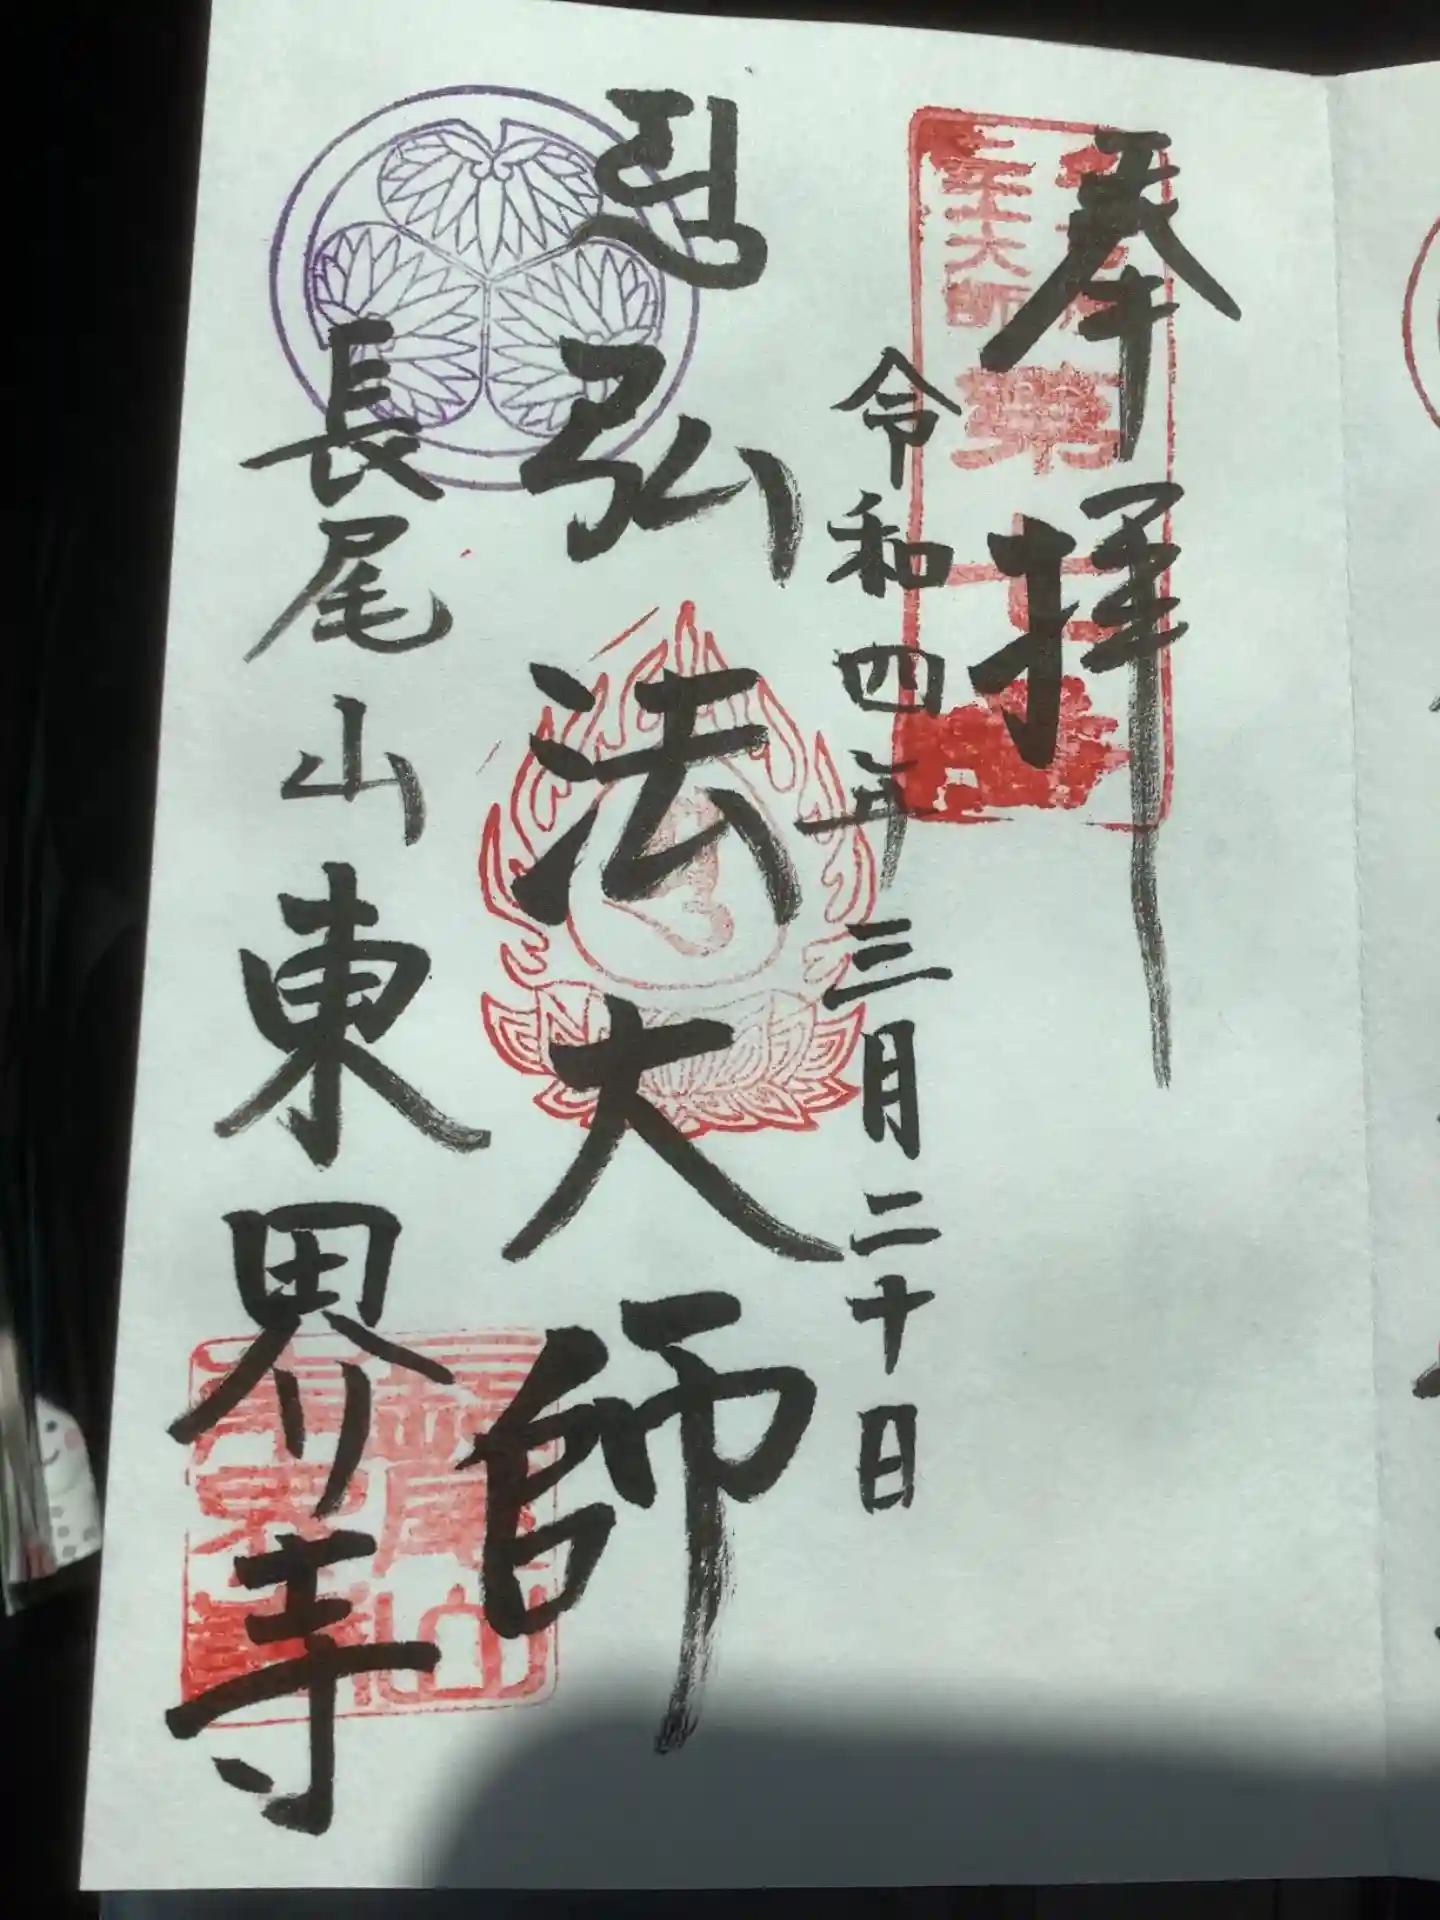 奉拝
令和四年三月二十日
弘法大師
長尾山東界寺